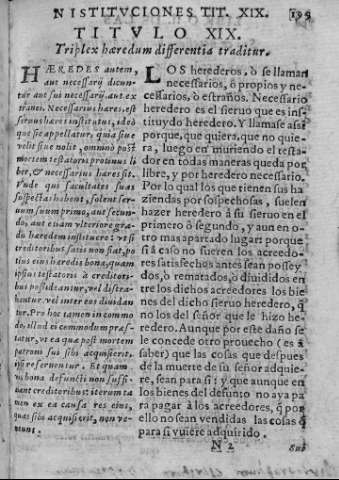 NISTITVCIONES TIT. XIX.
TITVLO XIX.
Triplex hæredum differentia traditur.
HÆREDES autem,
aut necessarij dicun-
tur aut sui necessarij, aut ex
tranei. Necessarius hæres, est
seruus hæres institutus, ideò
què sic appellatur, quia siue
velit siue nolit, omninò post
mortem testatoris protinus li
ber, & necessarius hæres sit.
Vnde qui facultates suas
suspectas habent, solent ser-
uum suum primo, aut secun-
do, aut etiam vlteriore gra-
du hæredem instituere: vt si
creditoribus satis non fiat, po
tius eius hæredis bona, quàm
ipsius testatoris à creditori-
bus possideantur, vel distra-
hantur. vel inter eos diuidan
tur. Pro hoc tamen in commo
do, illud ei commodum præs-
tatur, vt ea quæ post mortem
patroni sui sibi acquisierit,
ipsi reseruentur. Et quam
uis bona defuncti non suffi-
cant creditoribus: iterum ta
men ex ea causa res eius,
quas sibi acquisierit, non ve-
neunt.
LOS herederos, ò se llaman
necessarios, ò propios y ne-
cessarios, ò estraños. Necessario
heredero es el sieruo que es ins-
tituydo heredero. Y llamase assi
porque, que quiera, que no quie-
ra, luego en muriendo el testa-
dor en todas maneras queda por
libre, y por heredero necessario.
Por lo qual los que tienen sus ha
ziendas por sospechosas, suelen
hazer heredero à su sieruo en el
primero ò segundo, y aun en o-
tro mas apartado lugar: porque
si à caso no fueren los acreedo-
res satisfechos antes sean possey
dos, ò rematados, ò diuididos en
tre los dichos acreedores los bie-
nes del dicho sieruo heredero, q̃
no los del señor que le hizo he-
redero. Aunque por este daño se
le concede otro prouecho (es à
saber) que las cosas que despues
de la muerte de su señor adquie-
re, sean para si: y que aunque en
los bienes del defunto no aya pa
ra pagar à los acreedores, q̃ por
ello no sean vendidas las cosas q̃
para si vuiere adquirido.
N 2
Sui